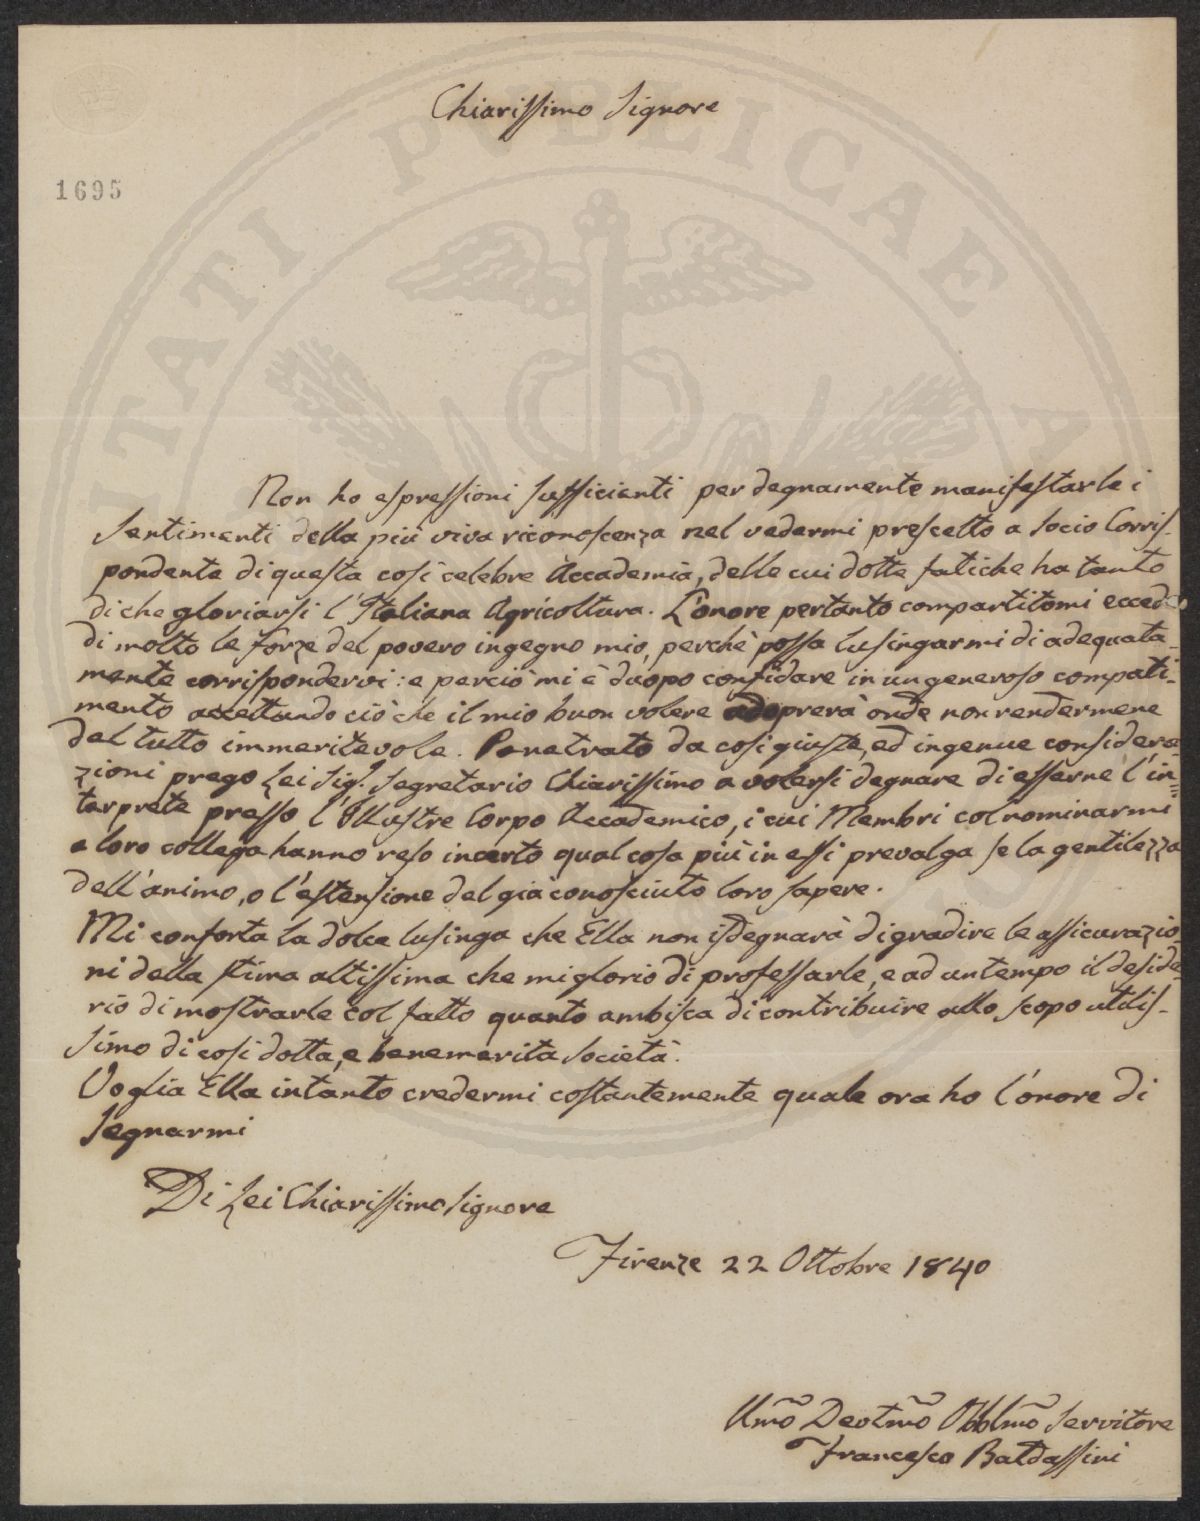 Chiarissimo Signore
1695
PUBLICAE
Non ho espressioni sufficienti per degnamente manifestarle i
sentimenti della più viva riconoscenza nel vedermi prescelto a Socio Corris-
pondente di questa così celebre Accademia, delle cui dotte fatiche ha tanto
di che gloriarsi l'Italiana Agricoltura. L'onore pertanto compartitomi eccede
di molto le forze del povero ingegno mio, perchè possa lusingarmi di adequata-
mente corrispondervi: e perciò mi è d'uopo confidare in un generoso compati-
mento accettando ciò che il mio buon volere adoprerà onde non rendermene
del tutto immeritevole. Penetrato da così giuste, ed ingenue considera-
zioni prego Lei Sigr. Segretario Chiarissimo a volersi degnare di esserne l'in=
terprete presso l'Illustre Corpo Accademico, i cui Membri col nominarmi
a loro collega hanno reso incerto qual cosa più in essi prevalga se la gentilezza
dell'animo, o l'estensione del già conosciuto loro sapere.
Mi conforta la dolce lusinga che Ella non isdegnarà di gradire le assicurazio-
ni della stima altissima che mi glorio di professarle, e ad un tempo il deside-
rio di mostrarle col fatto quanto ambisca di contribuire allo scopo utilis-
simo di così dotta, e benemerita Società.
Voglia Ella intanto credermi costantemente quale ora ho l'onore di
segnarmi
Di Lei Chiarissimo Signore
Firenze 22 Ottobre 1840
Umo Devotmo Obblmo Servitore
Francesco Baldassini